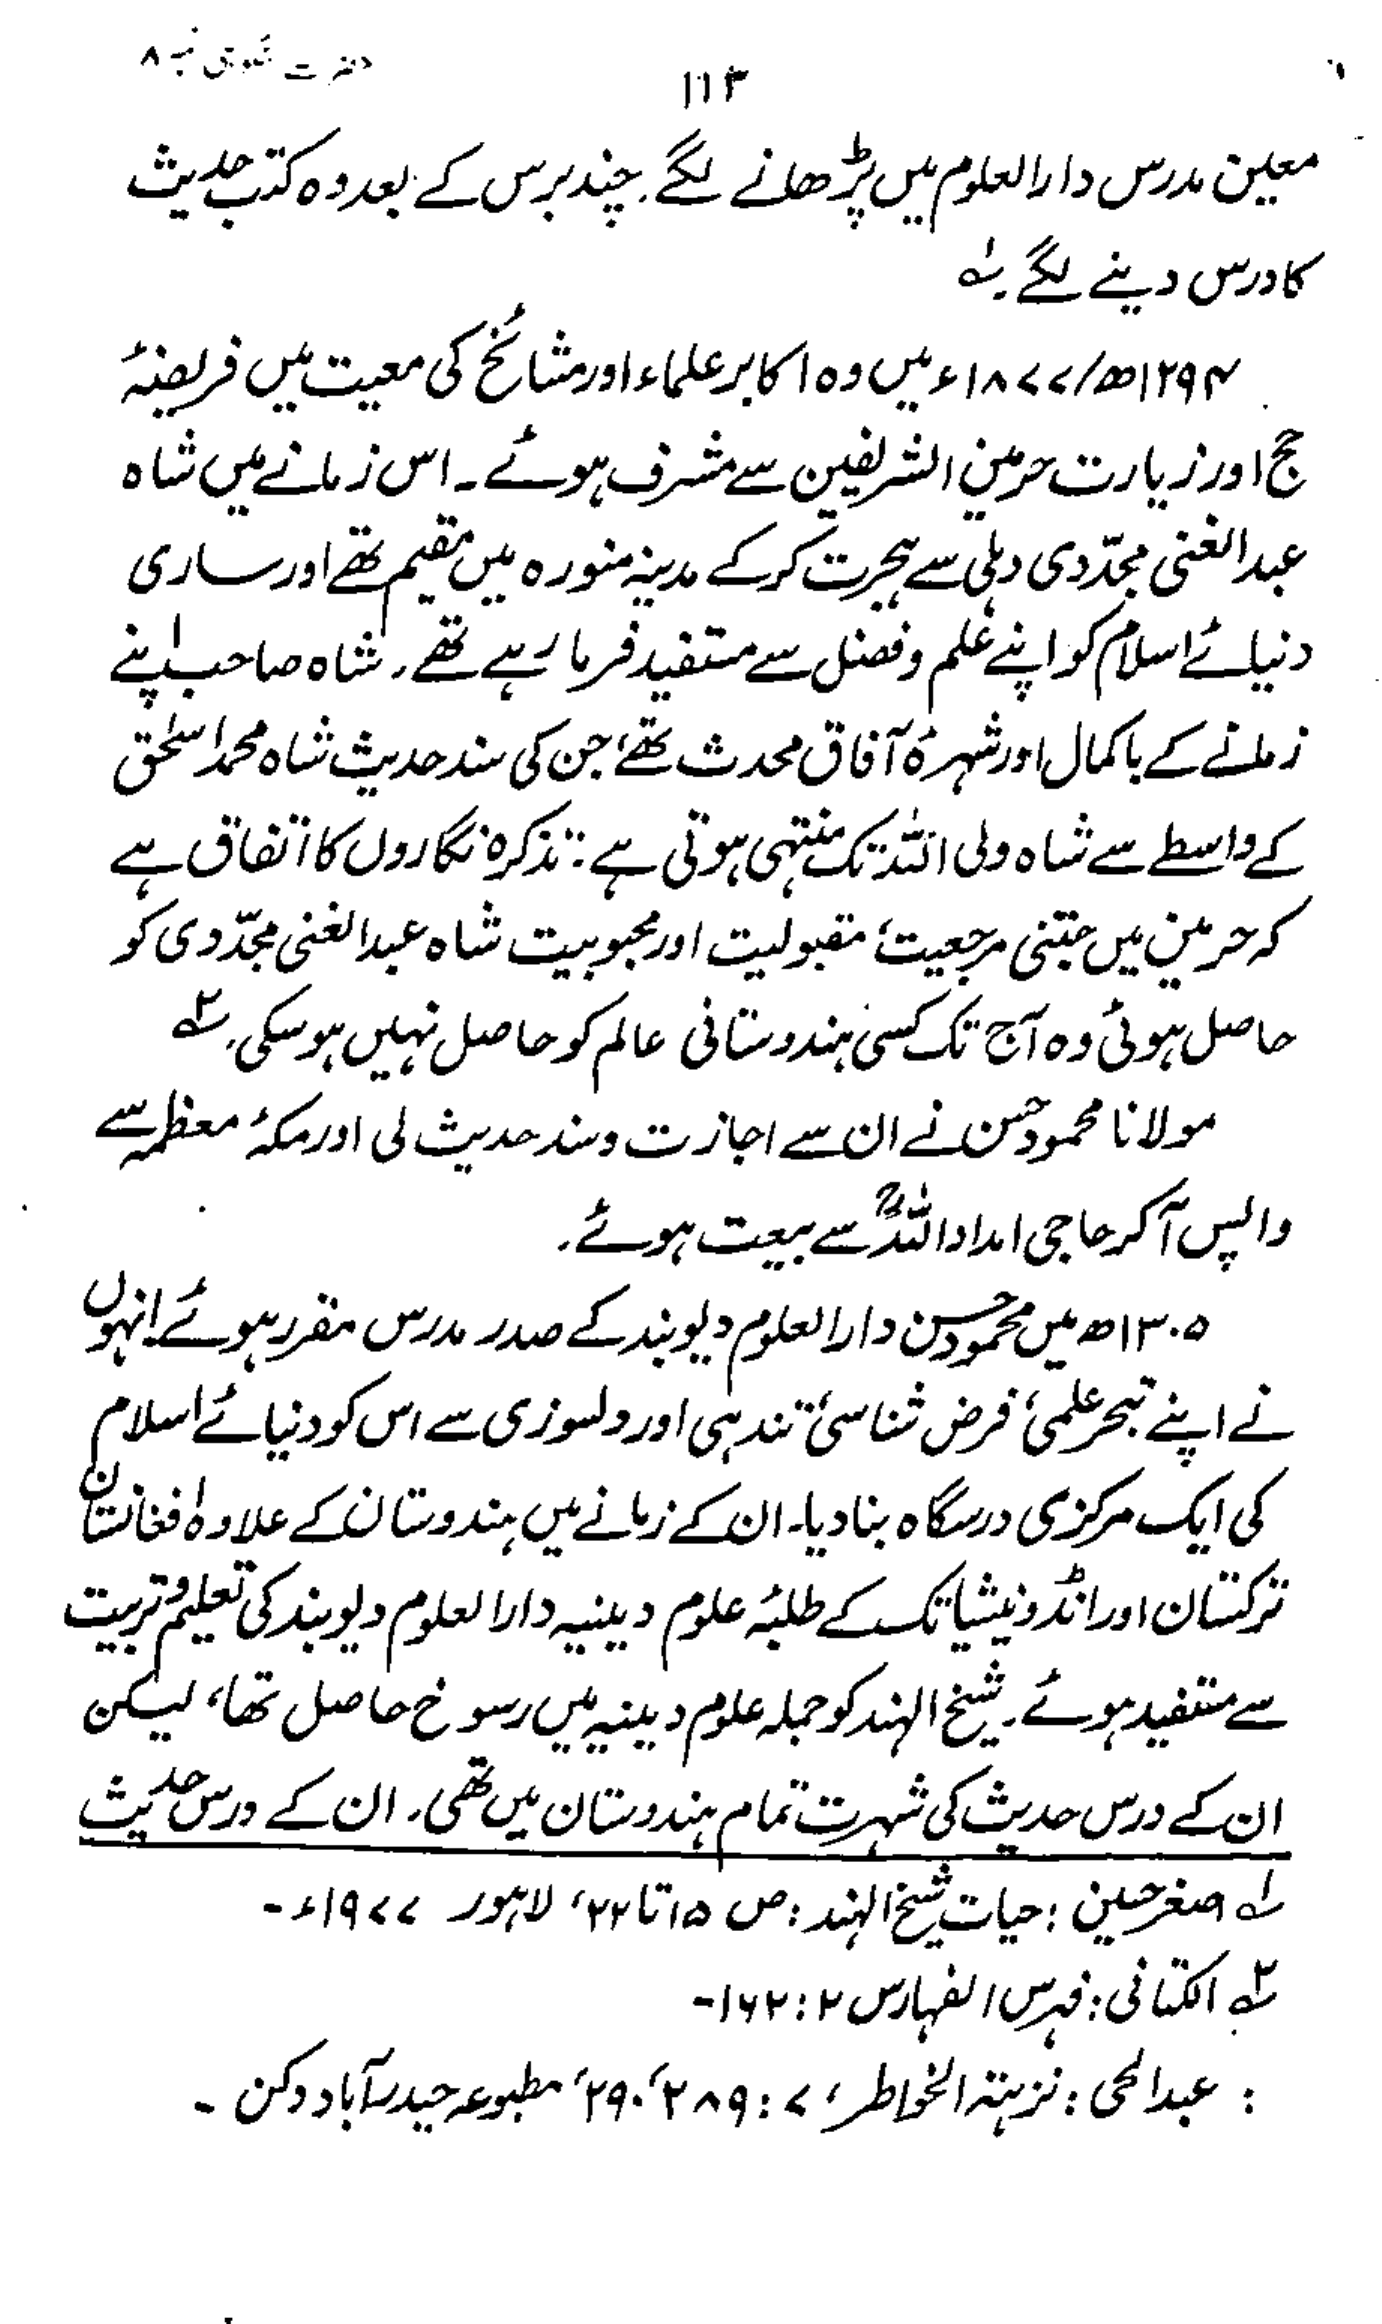 ۱۱۳
معین مدرس دارالعلوم میں پڑھانے لگے۔ چند برس کے بعد وہ کتب حدیث
کا درس دینے لگے۔ ۱ے
۱۲۹۴ھ/۱۸۷۷ء میں وہ اکابر علماء اور مشائخ کی معیت میں فریضۂ
حج اور زیارت حرمین الشریفین سے مشرف ہوئے۔ اس زمانے میں شاہ
عبدالغنی مجدّدی دہلی سے ہجرت کرکے مدینہ منورہ میں مقیم تھے اور ساری
دنیائے اسلام کو اپنے علم و فضل سے مستفید فرما رہے تھے۔ شاہ صاحب اپنے
زمانے کے باکمال اور شہرۂ آفاق محدث تھے، جن کی سند حدیث شاہ محمد اسحٰق
کے واسطے سے شاہ ولی اللہ تک منتہی ہوتی ہے۔ تذکرہ نگاروں کا اتفاق ہے
کہ حرمین میں جتنی مرجعیت، مقبولیت اور محبوبیت شاہ عبدالغنی مجدّدی کو
حاصل ہوئی وہ آج تک کسی ہندوستانی عالم کو حاصل نہیں ہوسکی۔ ۲ے
مولانا محمود حسن نے ان سے اجازت و سند حدیث لی اور مکۂ معظمہ سے
واپس آکر حاجی امداد اللہؒ سے بیعت ہوئے۔
۱۳۰۵ھ میں محمود حسن دارالعلوم دیوبند کے صدر مدرس مقرر ہوئے۔ انہوں
نے اپنے تبحر علمی، فرض شناسی، تندہی اور دلسوزی سے اس کو دنیائے اسلام
کی ایک مرکزی درسگاہ بنا دیا۔ ان کے زمانے میں ہندوستان کے علاوہ افغانستان
ترکستان اور انڈونیشیا تک کے طلبۂ علوم دینیہ دارالعلوم دیوبند کی تعلیم و تربیت
سے مستفید ہوئے۔ شیخ الہند کو جملہ علوم دینیہ میں رسوخ حاصل تھا، لیکن
ان کے درس حدیث کی شہرت تمام ہندوستان میں تھی۔ ان کے درس حدیث
۱ے اصغر حسین : حیات شیخ الہند : ص ۱۵ تا ۲۲، لاہور ۱۹۷۷ء۔
۲ے الکتانی : فہرس الفہارس ۲ : ۱۶۲۔
: عبدالحی : نزہتہ الخواطر، ۷ : ۲۸۹، ۲۹۰، مطبوعہ حیدرآباد دکن ۔